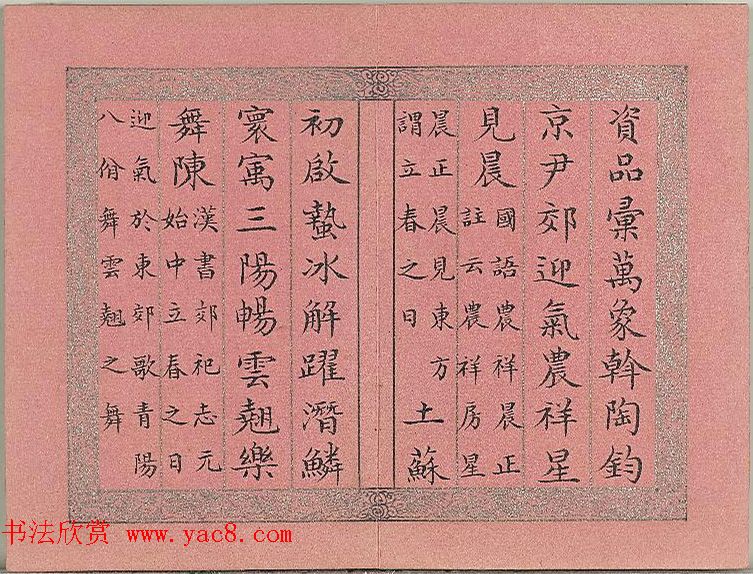 資品彙萬象斡陶鈞
京尹郊迎氣農祥星
見晨
國語農祥晨正
註云農祥房星
晨正晨見東方
謂立春之日
土蘇
初啟蟄冰解躍潛鱗
寰寓三陽暢雲翹樂
舞陳
漢書郊祀志元
始中立春之日
迎氣於東郊歌青陽
八佾舞雲翹之舞
书法欣赏 www.yac8.com